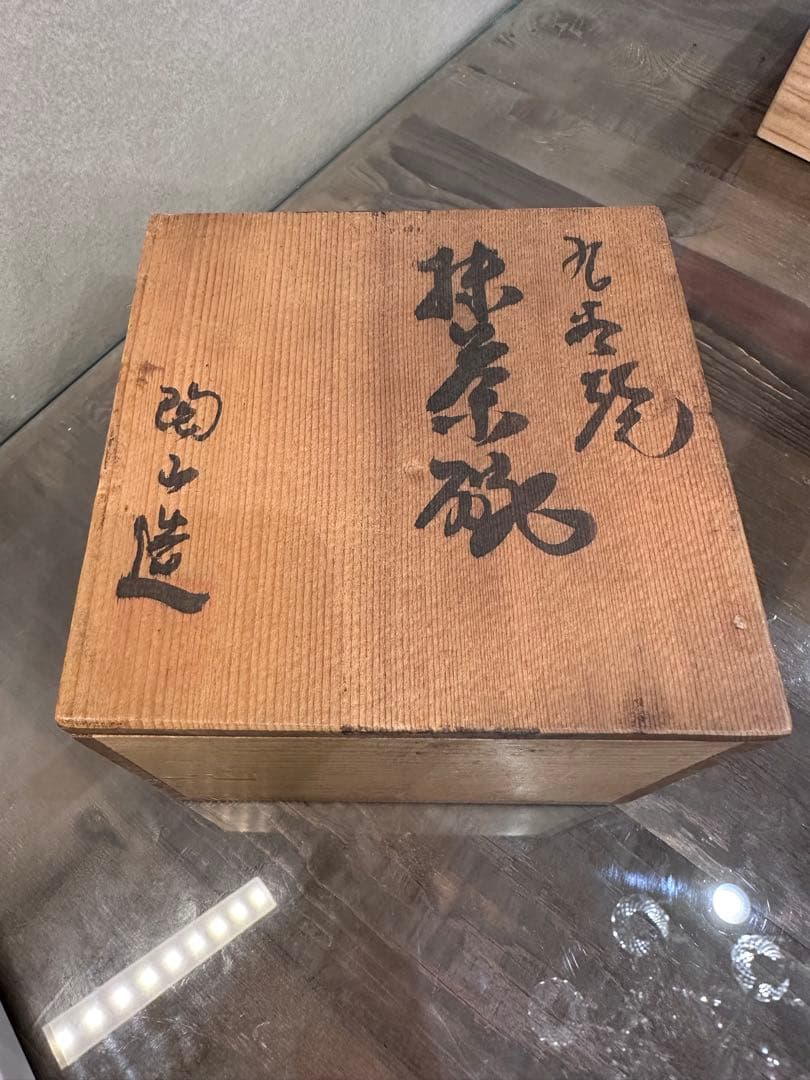 九谷焼
抹茶碗
陶山造